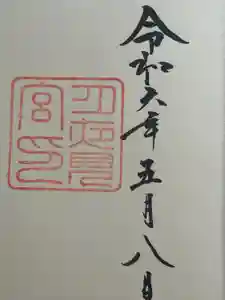 令和六年五月八日